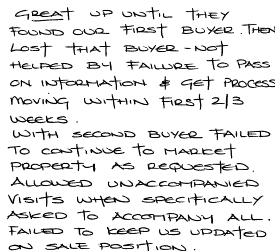 GREAT UP UNTIL THEY
FOUND OUR FIRST BUYER. THEN
LOST THAT BUYER - NOT
HELPED BY FAILURE TO PASS
ON INFORMATION & GET PROCESS
MOVING WITHIN FIRST 2/3
WEEKS.
WITH SECOND BUYER FAILED
TO CONTINUE TO MARKET
PROPERTY AS REQUESTED.
ALLOWED UNACCOMPANIED
VISITS WHEN SPECIFICALLY
ASKED TO ACCOMPANY ALL.
FAILED TO KEEP US UPDATED
ON SALE POSITION.